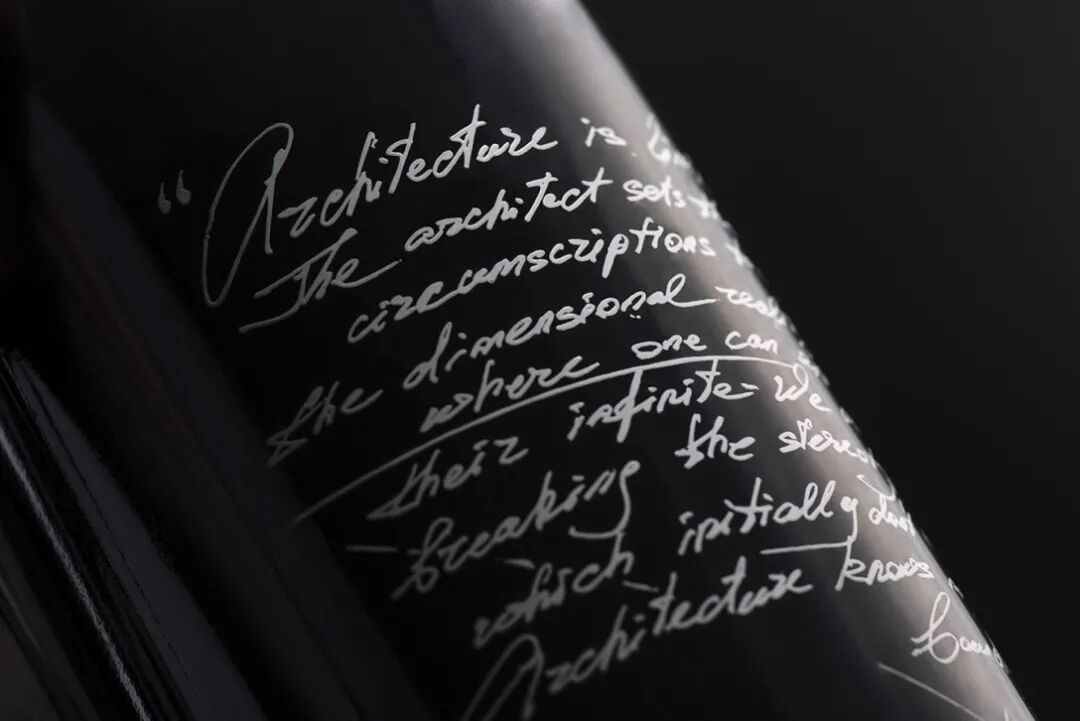 “Architecture is
The architect sets
circumscriptions
the dimensional
where one can
their infinite - We
breaking the
which initially don't
Architecture knows